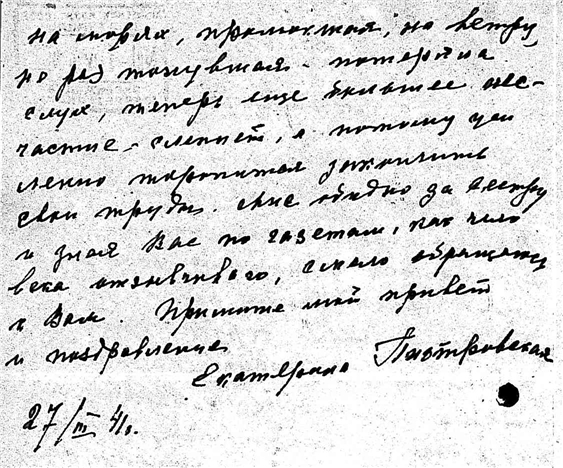 на морях, промокшая, на ветру,
не раз тонувшая - потеряла
слух, теперь еще большее нес-
частие - слепнет, а потому уси
ленно торопится закончить
свои труды. Мне обидно за сестру
и зная Вас по газетам, как чело
века отзывчивого, смело обращаюсь
к Вам. Примите мой привет
и поздравление
Екатерина Пиотровская
27/III 41г.